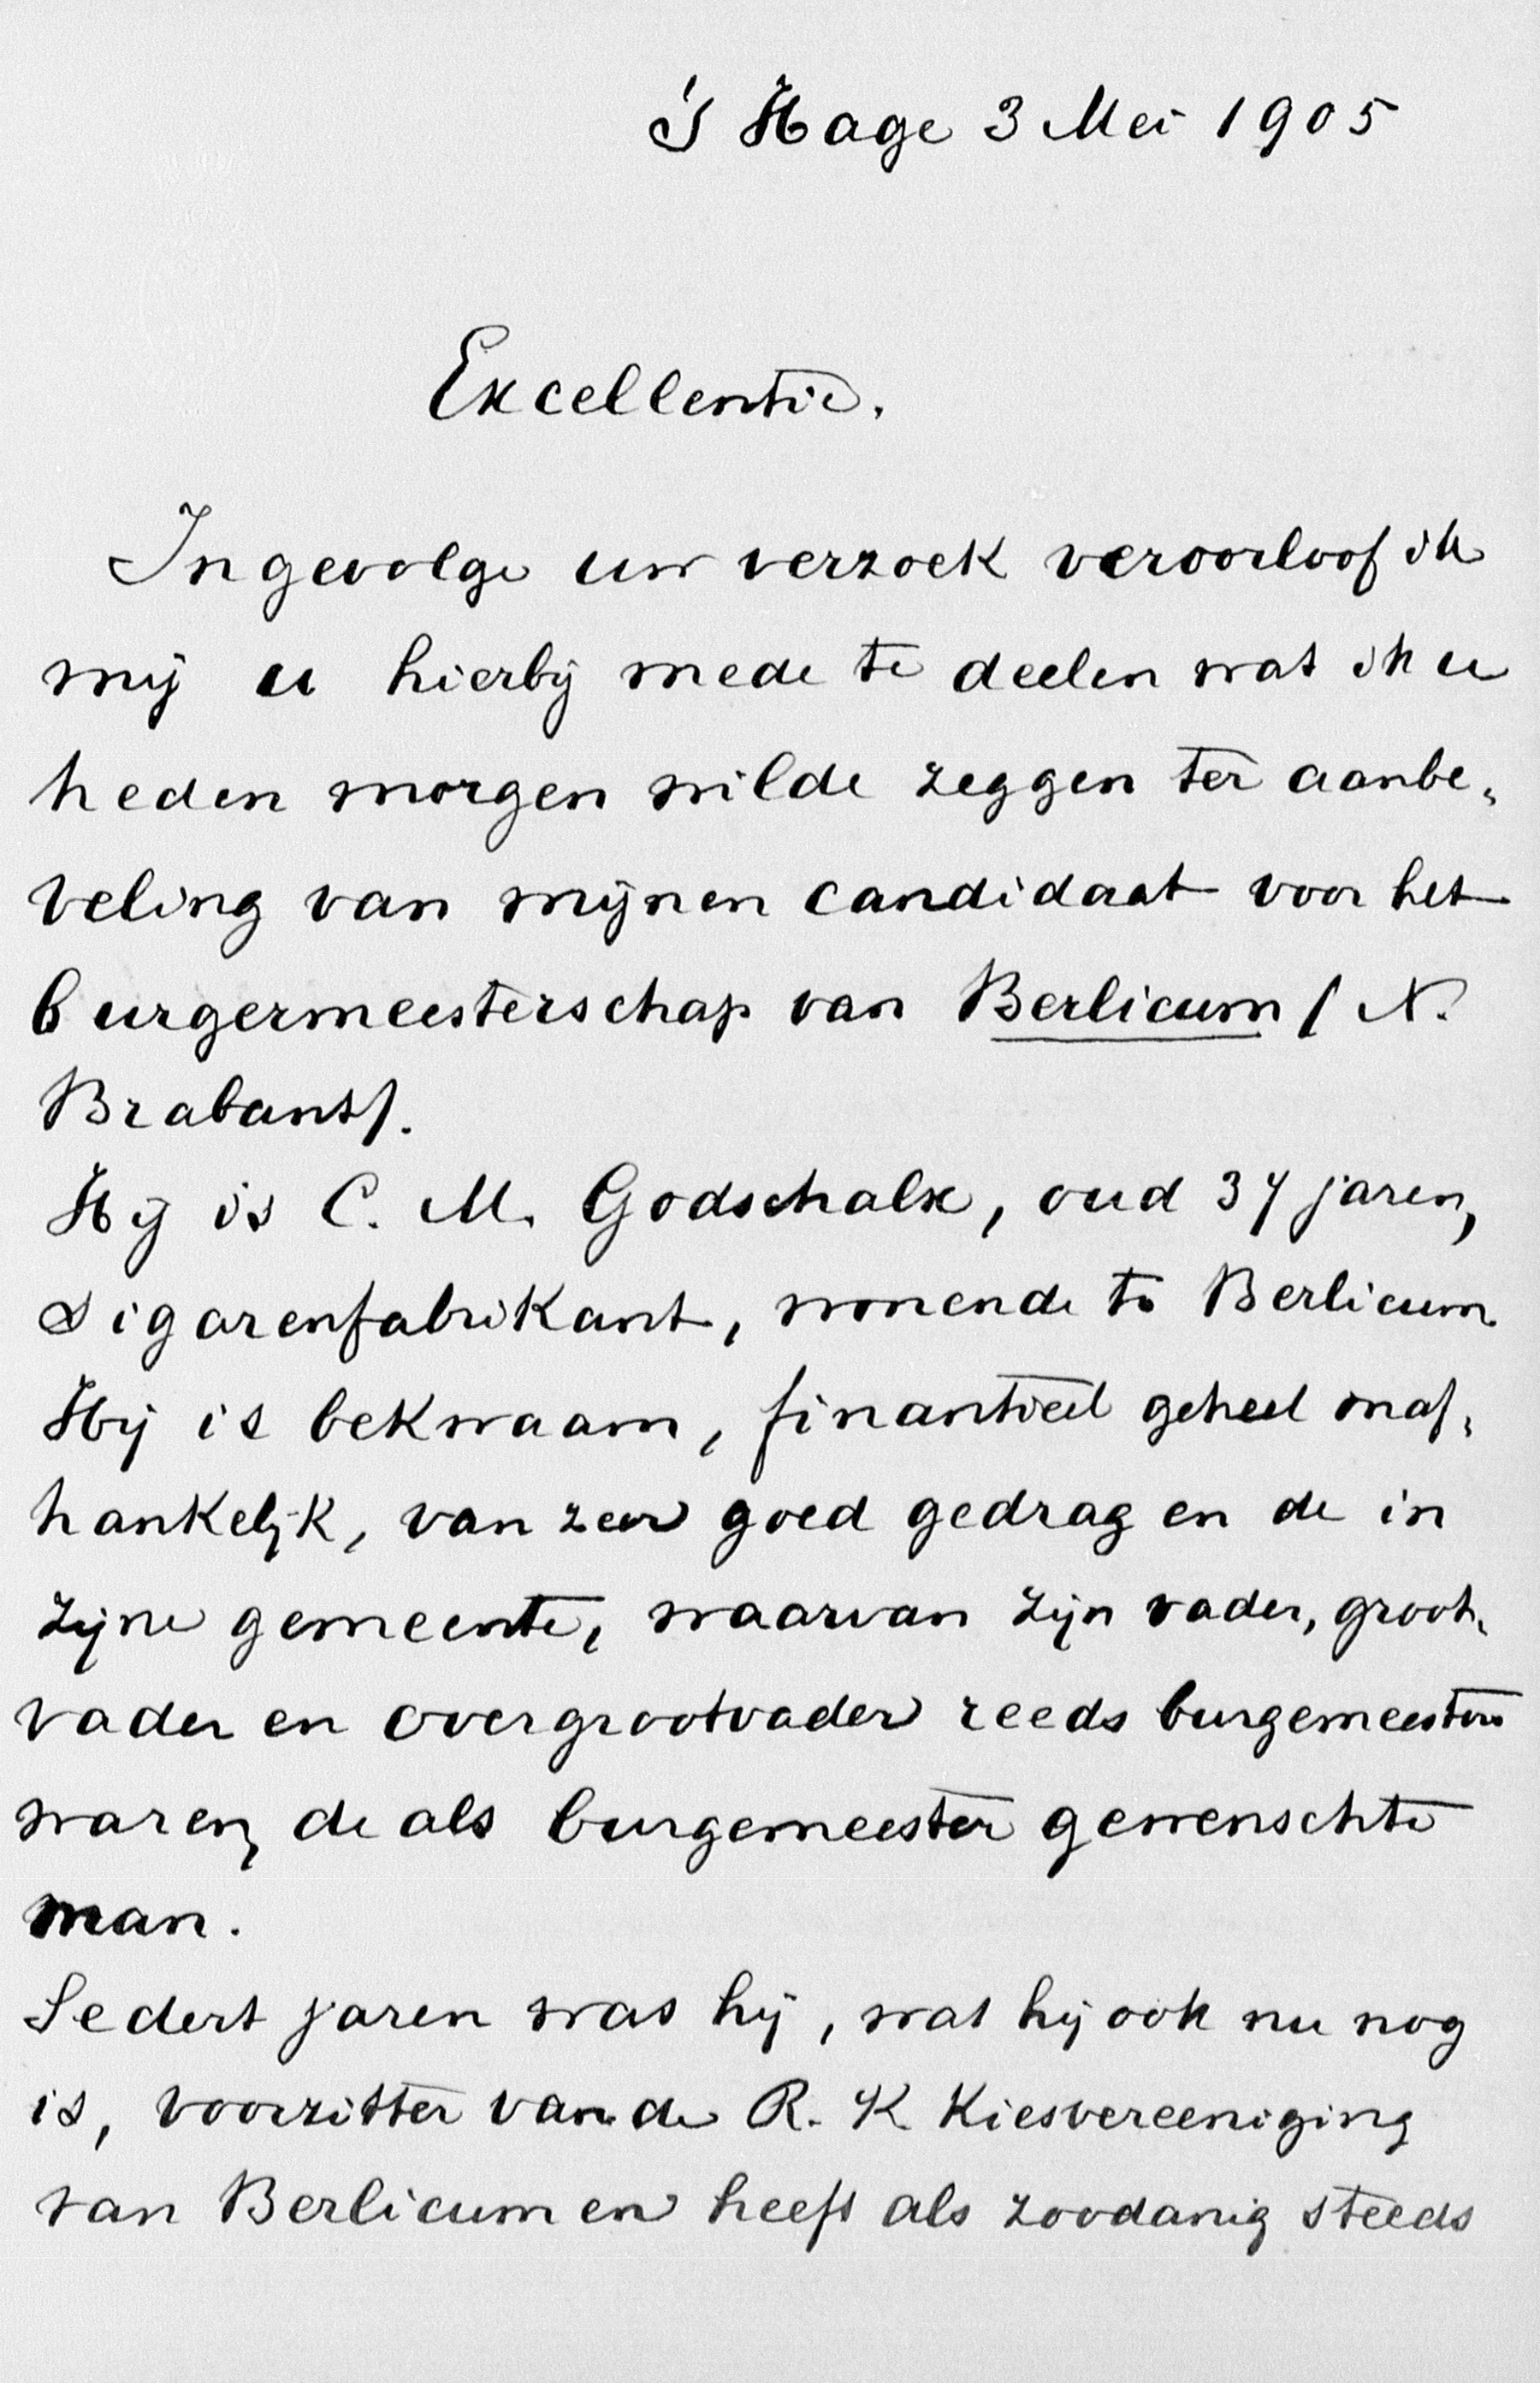 'S Hage 3 Mei 1905
Excellentie.
Ingevolge uw verzoek veroorloof ik
mij u hierbij mede te deelen wat ik u
heden morgen wilde zeggen ter aanbe„
veling van mijnen candidaat voor het
burgermeesterschap van Berlicum (N.
Brabant).
Hij is C. M. Godschalx, oud 37 jaren,
sigarenfabrikant, wonende te Berlicum
Hij is bekwaam, finantieel geheel onaf„
hankelijk, van zeer goed gedrag en de in
zijne gemeente, waarvan zijn vader, groot„
vader en overgrootvader reeds burgemeesters
waren, de als burgemeester gewenschte
man.
Sedert jaren was hij, wat hij ook nu nog
is, voorzitter van de R. K Kiesvereeniging
van Berlicum en heeft als zoodanig steeds